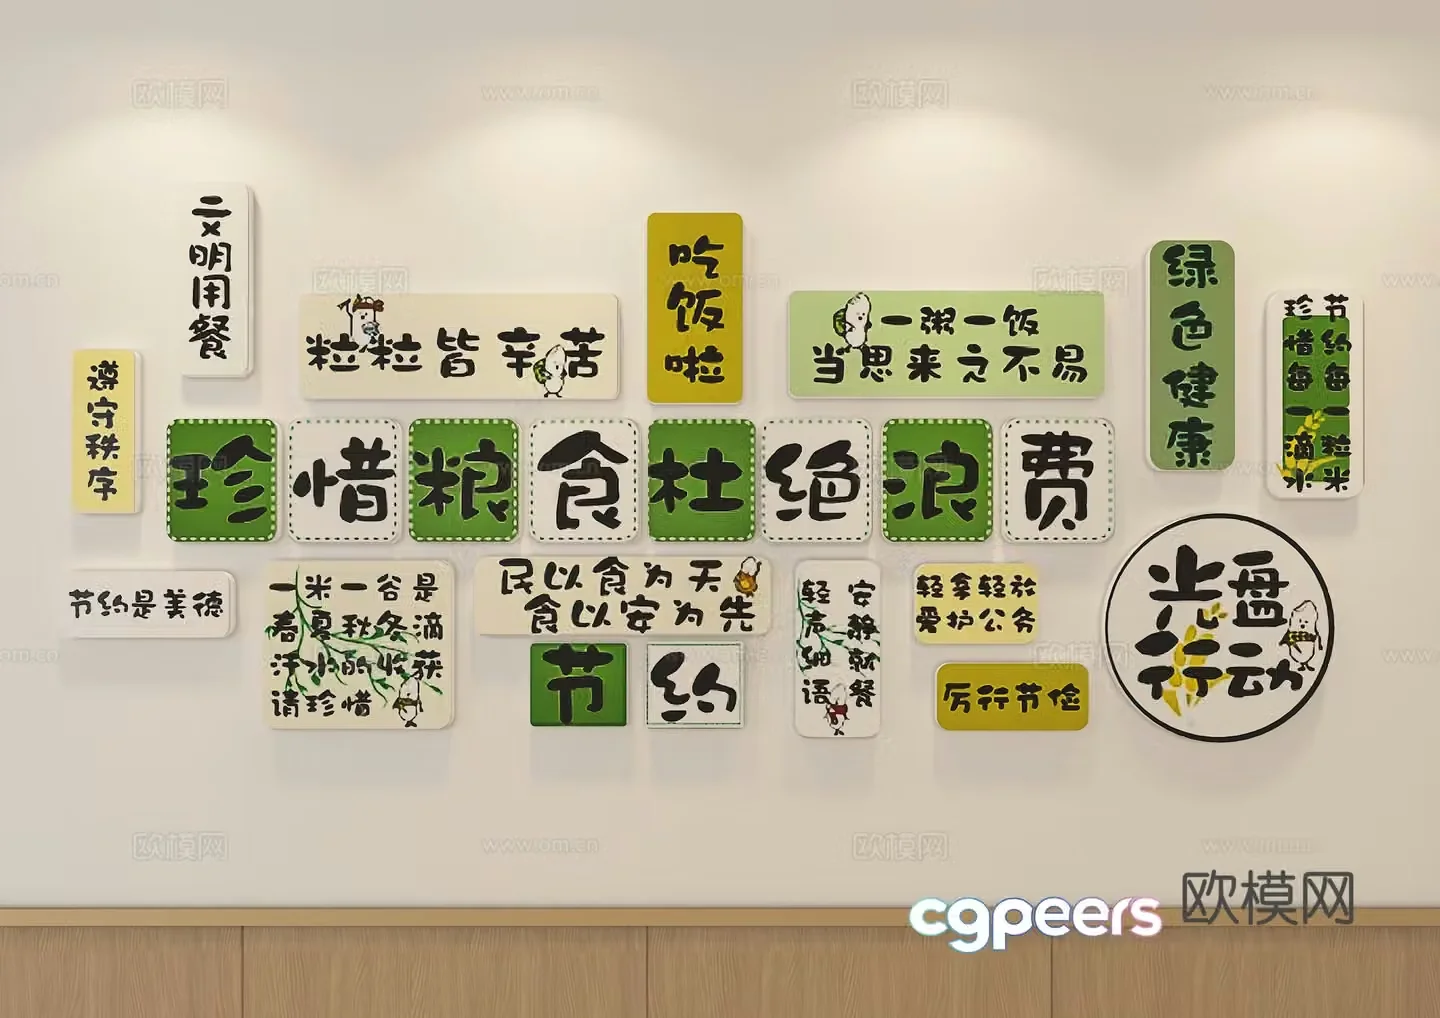 文明用餐
遵守秩序
粒粒皆辛苦
吃饭啦
一粥一饭
当思来之不易
绿色健康
节约每一粒米
珍惜每一滴水
珍惜粮食杜绝浪费
节约是美德
一米一谷是
春夏秋冬滴
汗水的收获
请珍惜
民以食为天
食以安为先
节约
安静就餐
轻声细语
轻拿轻放
爱护公务
厉行节俭
光盘
行动
cgpeers
欧模网
www.om.cn